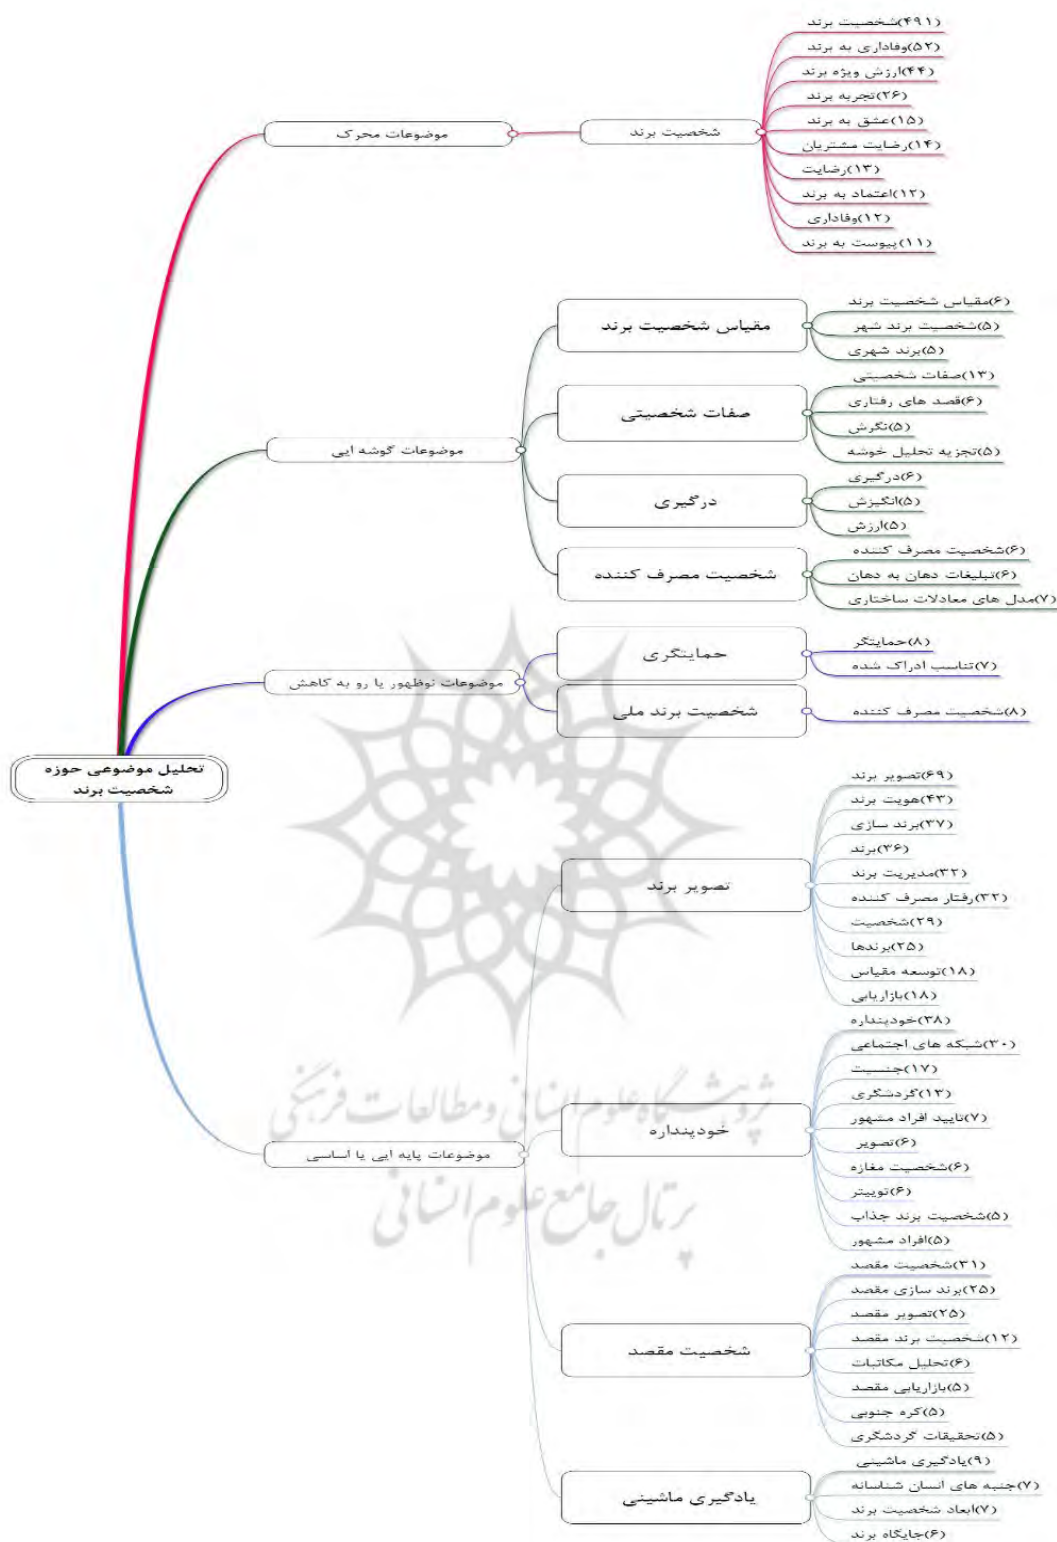 تحلیل موضوعی حوزه
شخصیت برند
موضوعات محرک
شخصیت برند
(۴۹۱)شخصیت برند
(۵۲)وفاداری به برند
(۴۴)ارزش ویژه برند
(۲۶)تجربه برند
(۱۵)عشق به برند
(۱۴)رضایت مشتریان
(۱۳)رضایت
(۱۲)اعتماد به برند
(۱۲)وفاداری
(۱۱)پیوست به برند
موضوعات گوشه ایی
مقیاس شخصیت برند
(۶)مقیاس شخصیت برند
(۵)شخصیت برند شهر
(۵)برند شهری
صفات شخصیتی
(۱۳)صفات شخصیتی
(۶)قصد های رفتاری
(۵)نگرش
(۵)تجزیه تحلیل خوشه
درگیری
(۶)درگیری
(۵)انگیزش
(۵)ارزش
شخصیت مصرف کننده
(۶)شخصیت مصرف کننده
(۶)تبلیغات دهان به دهان
(۷)مدل های معادلات ساختاری
موضوعات نوظهور یا رو به کاهش
حمایتگری
(۸)حمایتگر
(۷)تناسب ادراک شده
شخصیت برند ملی
(۸)شخصیت مصرف کننده
موضوعات پایه ایی یا اساسی
تصویر برند
(۶۹)تصویر برند
(۴۳)هویت برند
(۳۷)برند سازی
(۳۶)برند
(۳۲)مدیریت برند
(۳۲)رفتار مصرف کننده
(۲۹)شخصیت
(۲۵)برندها
(۱۸)توسعه مقیاس
(۱۸)بازاریابی
خودپنداره
(۳۸)خودپنداره
(۳۰)شبکه های اجتماعی
(۱۷)جنسیت
(۱۳)گردشگری
(۷)تایید افراد مشهور
(۶)تصویر
(۶)شخصیت مغازه
(۶)توییتر
(۵)شخصیت برند جذاب
(۵)افراد مشهور
شخصیت مقصد
(۳۱)شخصیت مقصد
(۲۵)برند سازی مقصد
(۲۵)تصویر مقصد
(۱۲)شخصیت برند مقصد
(۶)تحلیل مکاتبات
(۵)بازاریابی مقصد
(۵)کره جنوبی
(۵)تحقیقات گردشگری
یادگیری ماشینی
(۹)یادگیری ماشینی
(۷)جنبه های انسان شناسانه
(۷)ابعاد شخصیت برند
(۶)جایگاه برند
پژوهشگاه علوم انسانی و مطالعات فرهنگی
پرتال جامع علوم انسانی